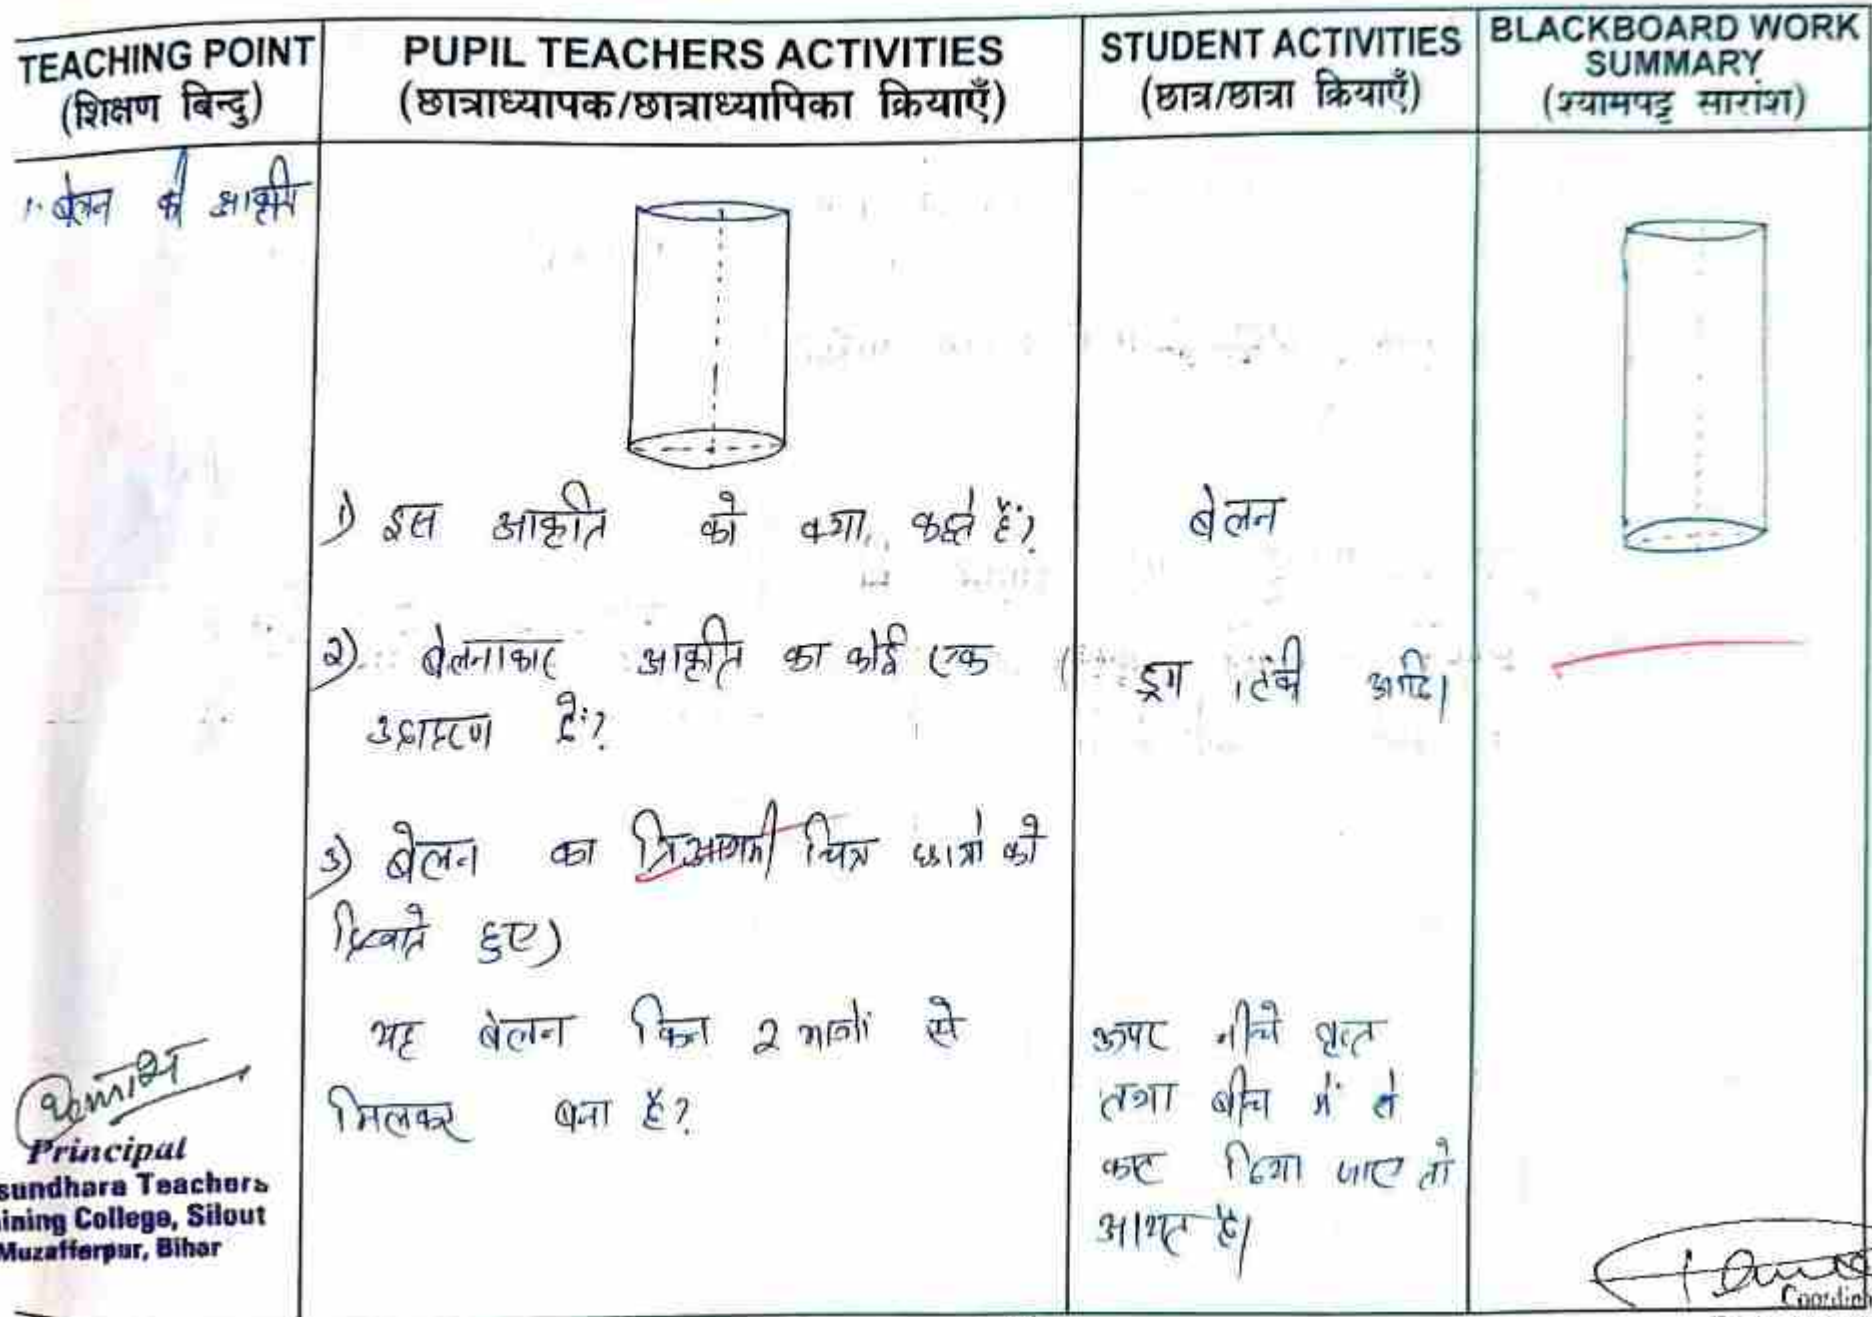 TEACHING POINT
(शिक्षण बिन्दु)
PUPIL TEACHERS ACTIVITIES
(छात्राध्यापक/छात्राध्यापिका क्रियाएँ)
STUDENT ACTIVITIES
(छात्र/छात्रा क्रियाएँ)
BLACKBOARD WORK
SUMMARY
(श्यामपट्ट सारांश)
1. बेलन की आकृति
1) इस आकृति को क्या कहते हैं?
बेलन
2) बेलनाकार आकृति का कोई एक
उदाहरण दें?
ड्रम, टंकी आदि।
3) बेलन का त्रिआयामी चित्र छात्रों को
दिखाते हुए)
यह बेलन किन 2 भागों से
मिलकर बना है?
ऊपर नीचे वृत्त
तथा बीच में से
काट दिया जाए तो
आयत है।
Principal
sundhara Teachers
ining College, Silout
Muzafferpur, Bihar
Coordin